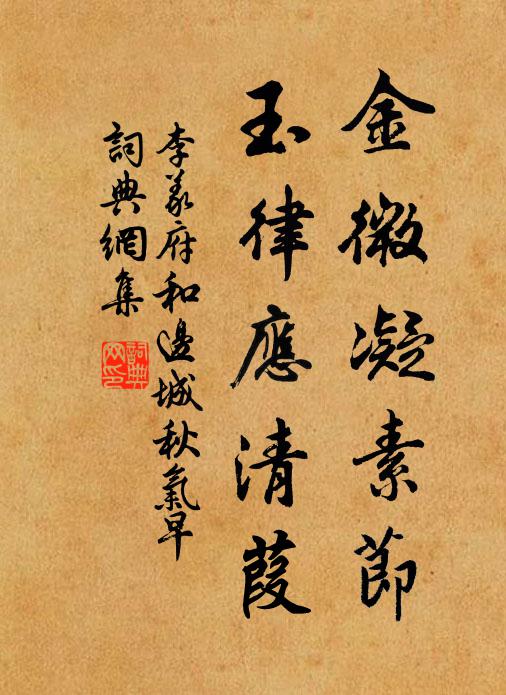 金微凝素節
玉律應清葭
李義府和邊城秋氣早
詞典網集
詞典
网印